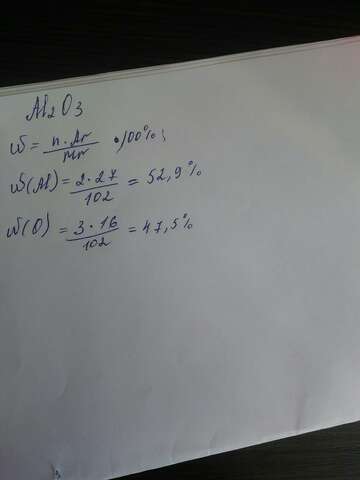 Al2O3
ω = n·Ar/Mr ·100%;
ω(Al) = 2·27/102 = 52,9%
ω(O) = 3·16/102 = 47,5%